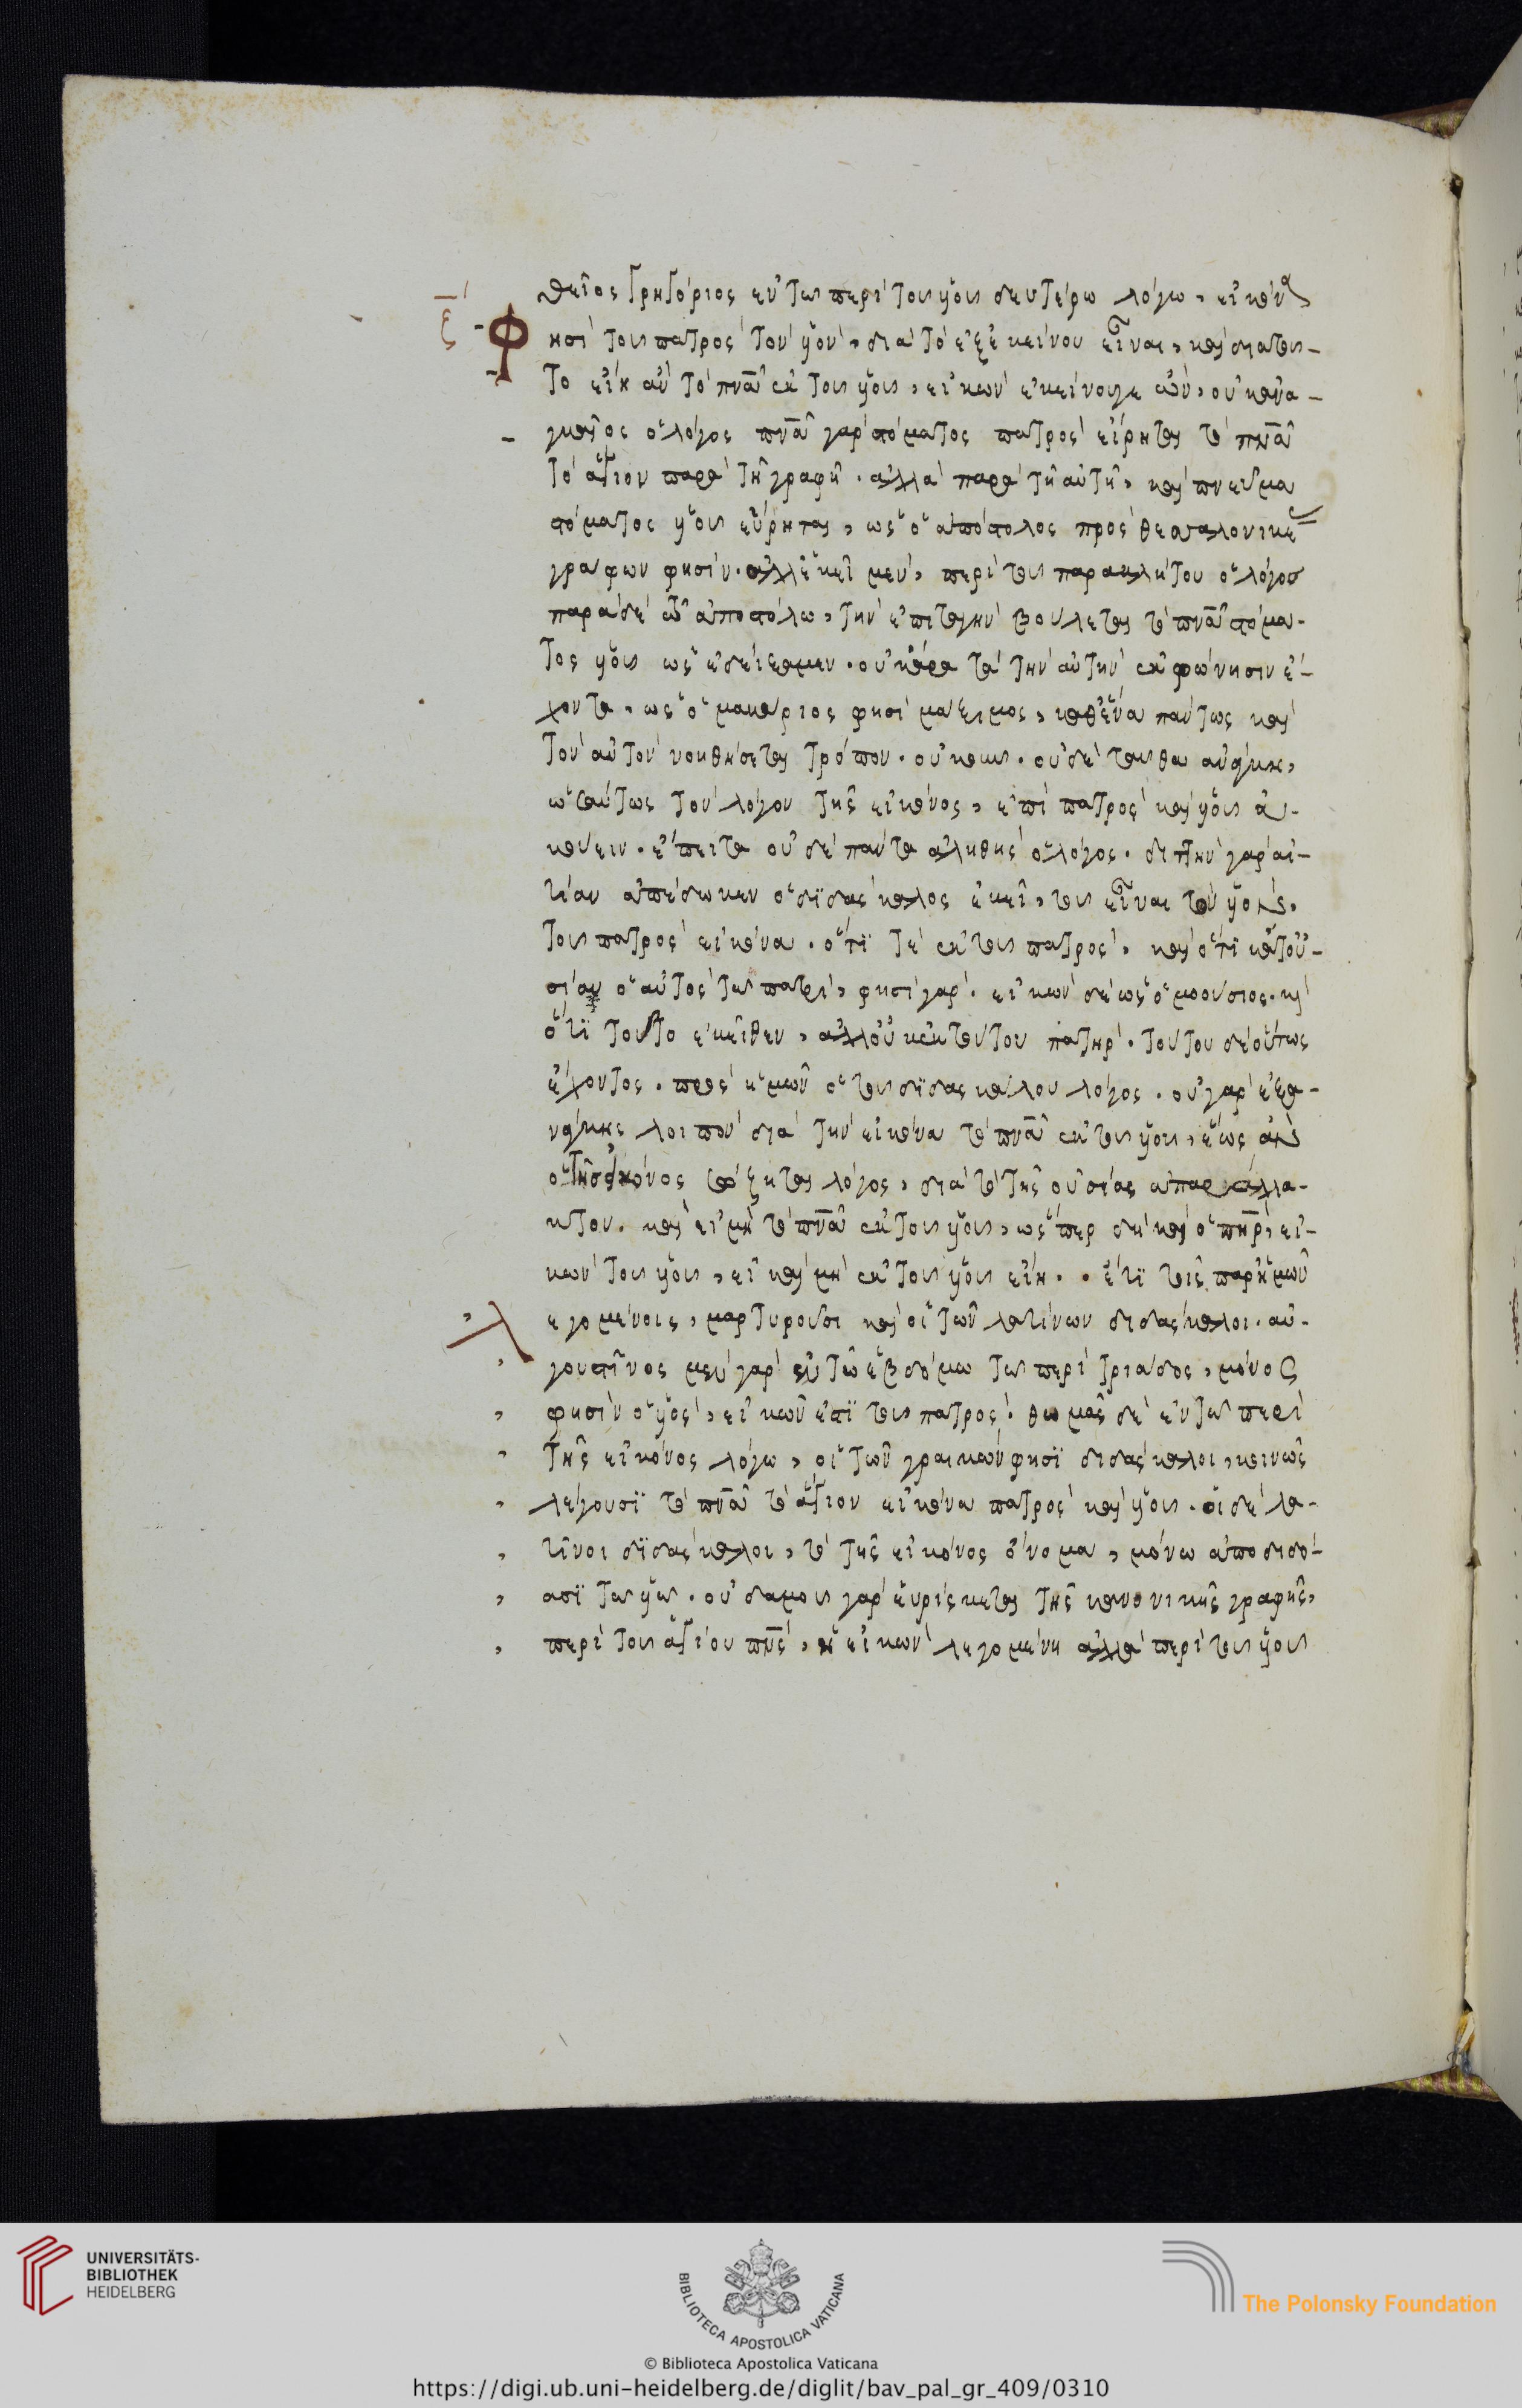 θεῖος γρηγόριος ἐν τῶ περὶ τοῦ υἱοῦ δευτέρω λόγω, εἰκόνα
ξ
φησὶ τοῦ πατρὸς τὸν υἱὸν, διὰ τὸ ἐξ ἐκείνου εἶναι, καὶ διὰ τοῦ-
το εἴη ἂν τὸ πνα ἐκ τοῦ υἱοῦ, εἰκὼν ἐκείνου γε ὢν, οὐκ ἀνα-
γκαῖος ὁ λόγος πνα γὰρ στόματος πατρὸς εἴρηται τὸ πνα
τὸ ἅγιον παρὰ τῆ γραφῆ. ἀλλὰ παρὰ τῆ αὐτῆ, καὶ πνεῦμα
στόματος υἱοῦ εὕρηται, ὡς ὁ ἀπόστολος πρὸς θεσσαλονικεῖς
γράφων φησίν. ἀλλ' ἐκεῖ μὲν, περὶ τοῦ παρακλήτου ὁ λόγος
παρὰ δὲ τῶ ἀποστόλω, τὴν ἐπιταγὴν βούλεται τὸ πνα στόμα-
τος υἱοῦ ὡς ἐδείξαμεν. οὐκ ἄρα τὰ τὴν αὐτὴν ἐκφώνησιν ἔ-
χοντα, ὡς ὁ μακάριος φησὶ μάξιμος, καθ' ἕνα πάντως καὶ
τὸν αὐτὸν νοηθήσεται τρόπον. οὐκοῦν. οὐδὲ ἐνταῦθα ἀνάγκη,
ὡσαύτως τὸν λόγον τῆς εἰκόνος, ἐπὶ πατρὸς καὶ υἱοῦ ἀ-
κούειν. ἔπειτα οὐδὲ πάντα ἀληθὴς ὁ λόγος. διττὴν γὰρ αἰ-
τίαν ἀπέδωκεν ὁ διδάσκαλος ἐκεῖ, τοῦ εἶναι τὸν υἱὸν
τοῦ πατρὸς εἰκόνα. ὅτι τὲ ἐκ τοῦ πατρὸς, καὶ ὅτι κατ' οὐ-
σίαν ὁ αὐτὸς τῶ πατρὶ, φησὶ γάρ. εἰκὼν δὲ ὡς ὁμοούσιος. καὶ
ὅτι τοῦτο ἐκεῖθεν, ἀλλ' οὐκ ἐκ τούτου πατήρ. τούτου δὲ οὕτως
ἔχοντος. πρὸς ἡμῶν ὁ τοῦ διδασκάλου λόγος. οὐ γὰρ ἐξ ἀ-
νάγκης λοιπὸν διὰ τὴν εἰκόνα τὸ πνα ἐκ τοῦ υἱοῦ, ἕως ἂν
ὁ τῆς εἰκόνος σώζηται λόγος, διὰ τὸ τῆς οὐσίας ἀπαράλλα-
κτον. καὶ εἰ μὴ τὸ πνα ἐκ τοῦ υἱοῦ, ὥσπερ δὴ καὶ ὁ πηρ, εἰ-
κὼν τοῦ υἱοῦ, εἰ καὶ μὴ ἐκ τοῦ υἱοῦ εἴη. ἔτι τοῖς παρ' ἡμῶν
λεγομένοις, μαρτυροῦσι καὶ οἱ τῶν λατίνων διδάσκαλοι. αὐ-
γουστῖνος μὲν γὰρ ἐν τῶ ἑβδόμω τῶ περὶ τριάδος, μόνος
φησὶν ὁ υἱὸς, εἰκὼν ἐστὶ τοῦ πατρός. θωμᾶς δὲ ἐν τῶ περὶ
τῆς εἰκόνος λόγω, οἱ τῶν γραικῶν φησὶ διδάσκαλοι, κοινῶς
λέγουσι τὸ πνα τὸ ἅγιον εἰκόνα πατρὸς καὶ υἱοῦ. οἱ δὲ λα-
τῖνοι διδάσκαλοι, τὸ τῆς εἰκόνος ὄνομα, μόνω ἀποδιδό-
ασι τῶ υἱῶ. οὐδαμοῦ γὰρ εὑρίσκεται τῆς κανονικῆς γραφῆς,
περὶ τοῦ ἁγίου πνς, ἡ εἰκὼν λεγομένη ἀλλὰ περὶ τοῦ υἱοῦ
UNIVERSITÄTS-
BIBLIOTHEK
HEIDELBERG
BIBLIOTECA APOSTOLICA VATICANA
The Polonsky Foundation
© Biblioteca Apostolica Vaticana
https://digi.ub.uni-heidelberg.de/diglit/bav_pal_gr_409/0310